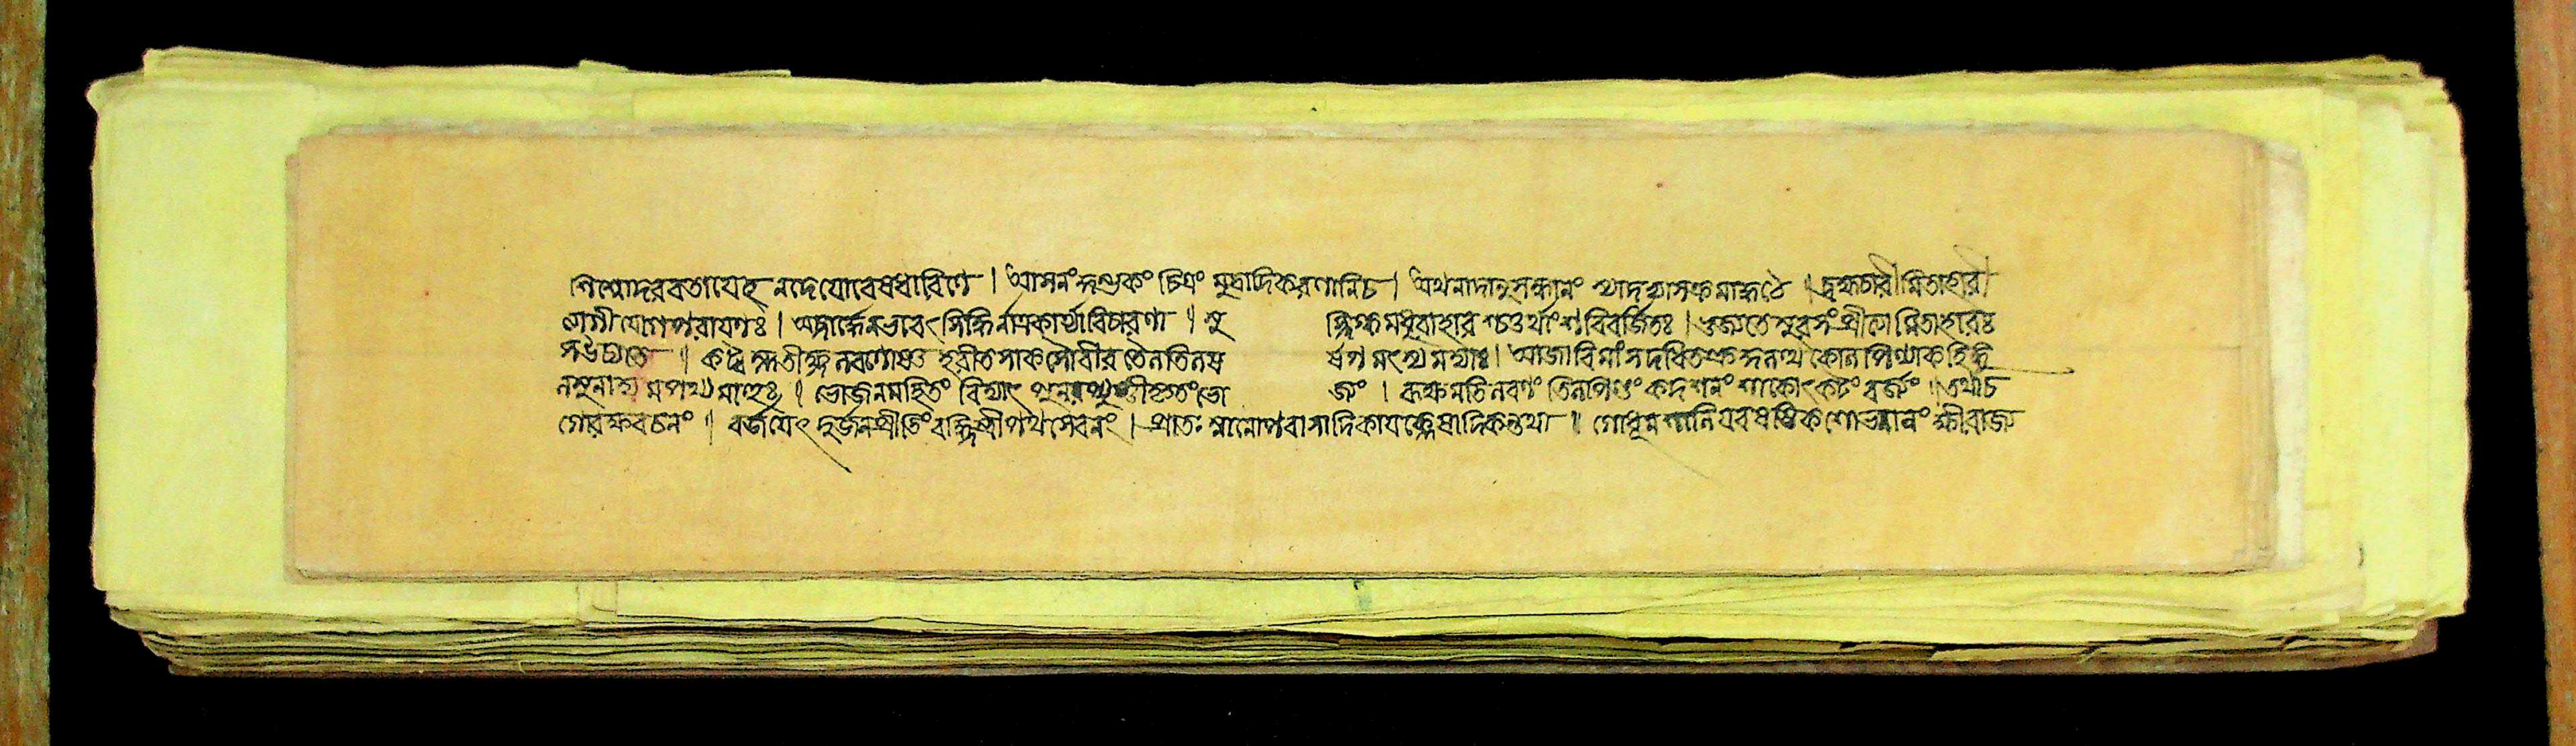 শিশ্নোদররতায়েহ নদেয়োবেষধারিণে । আসনংকুম্ভকং চিত্রং মুদ্রাদিকরণানিচ । অথনাদানুসন্ধানং স্যাদভ্যাসক্রমোহঠে । ব্রহ্মচারীমিতাহারী
যোগীযোগপরায়ণঃ । অব্দাদূর্দ্ধেনভবেৎ সিদ্ধির্নাত্রকার্য্যাবিচারণা ॥ সু স্নিগ্ধমধুরাহারশ্চতুর্থাংশবিবর্জিতঃ । ভুজ্যতেসুরসংপ্রীত্যৈমিতাহারঃ
সউচ্যতে ॥ কট্বম্লতীক্ষ্ণলবণোষ্ণ হরীতশাকসৌবীরতৈলতিলস র্ষপমৎস্যমদ্যাঃ । আজাবিমাংসদধিতক্রকুলত্থকোলপিণ্যাকহিঙ্গু
লশুনাদ্যমপথ্যমাহুঃ ॥ ভোজনমহিতং বিদ্যাৎ পুনরপ্যুষ্ণীকৃতংভো জ্যং । রূক্ষমতিলবণং তিলপিণ্ডং কদশনং শাকোৎকটং বর্জ্যং ॥ তথাচ
গোরক্ষবচনং ॥ বর্জয়েৎ দুর্জনপ্রীতিংবহ্নিস্ত্রীপথসেবনং । প্রাতঃস্নানোপবাসাদিকায়ক্লেষাদিকন্তথা ॥ গোধূমশালিযবষষ্টিকশোভনান্নং ক্ষীরাজ্য